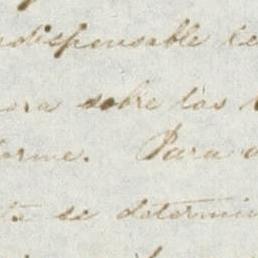 ndispensable te
ora sobre las
orme. Para
se determin